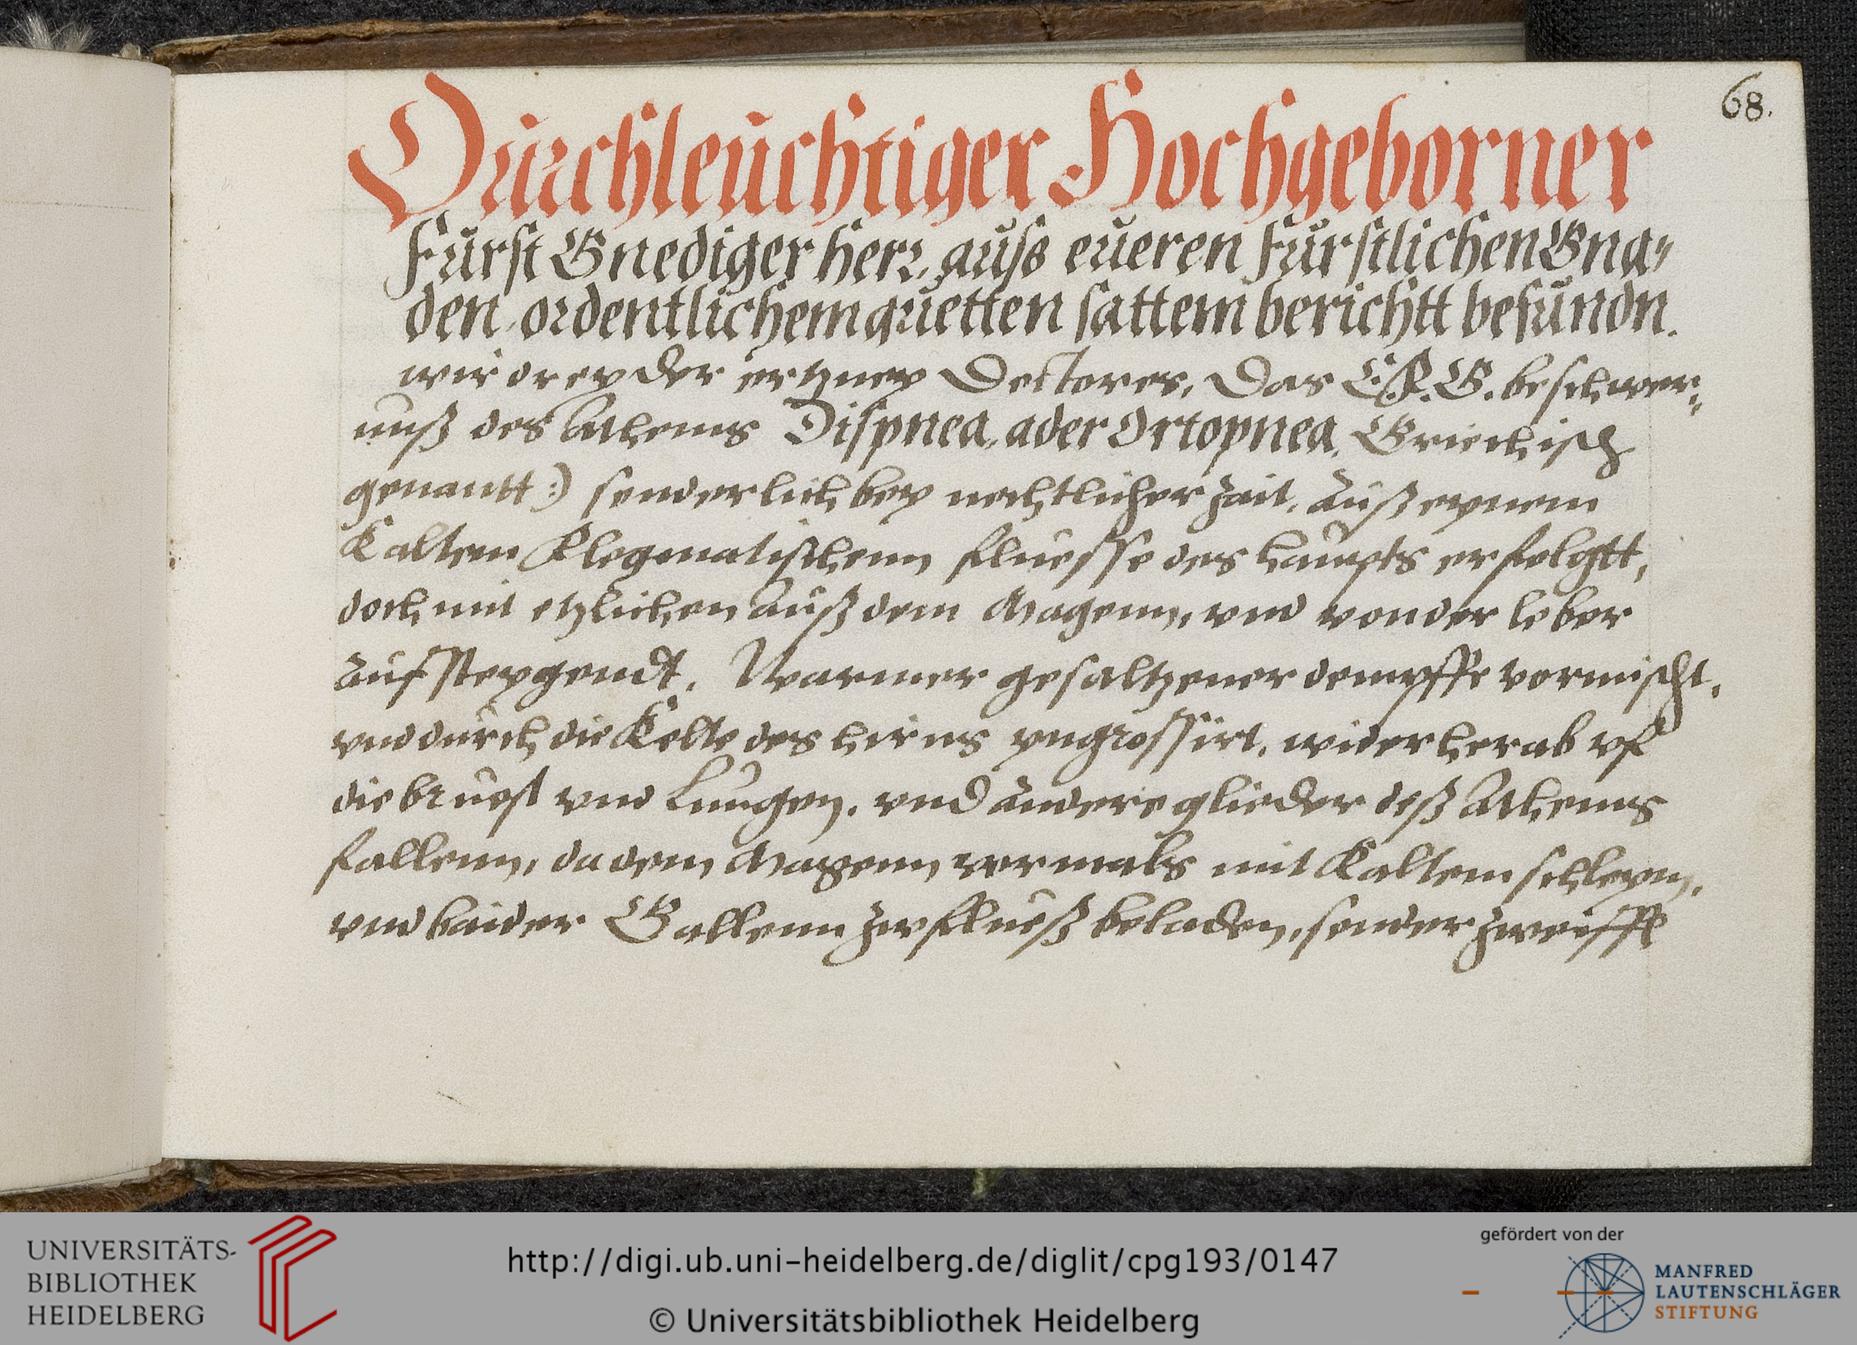 68.
Durchleuchtiger Hochgeborner
Furst Gnediger herr, auss eueren furstlichen Gna„
den ordentlichem guetten sattem berichtt befundn.
wir drey der ertzney Doctores, Das E. F. G. beschwer„
nuß des Athems Dispnea, ader Ortopnea, Griechisch
genantt :) sonderlich bey nechtlicher zait, auß eynem
Kaltem Flegmatischenn fluesse des haupts erfolgtt,
doch mit etzlichen auß dem Magenn, vnd von der leber
auf steygendt, Warmer gesaltzener dempffe vormischt,
vnd durch die Kelte des hirns yngrossirt, wider herab vf
die brust vnd Lungen, vnd andere glieder deß Athems
fallenn, da dem Magenn vormals mit Kaltem schleym,
vnd baider Gallenn zvfluß beladen, sonder zweiffl
UNIVERSITÄTS-
BIBLIOTHEK
HEIDELBERG
http://digi.ub.uni-heidelberg.de/diglit/cpg193/0147
© Universitätsbibliothek Heidelberg
gefördert von der
MANFRED
LAUTENSCHLÄGER
STIFTUNG